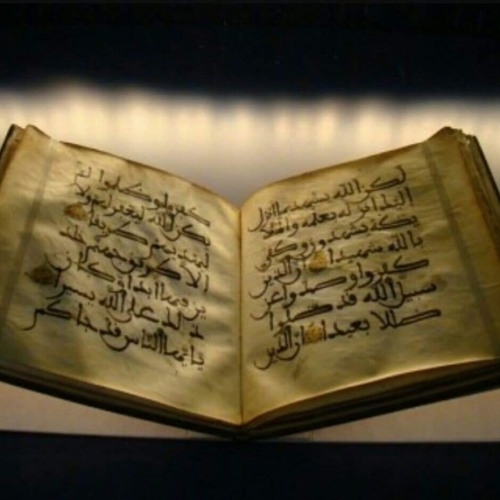 لكن الله يشهد بما انزل
اليك انزله بعلمه والملـ
يكة يشهدون وكفى
بالله شهيدا ان الذين
كفروا وصدوا عن
سبيل الله قد ضلوا
ضللا بعيدا ان الذين
كفروا وظلموا لم
يكن الله ليغفر لهم ولا
ليهديهم طريقا
الا طريق جهنم خلد
ين فيها ابدا وكان
ذلك على الله يسيرا
يايها الناس قد جاكم